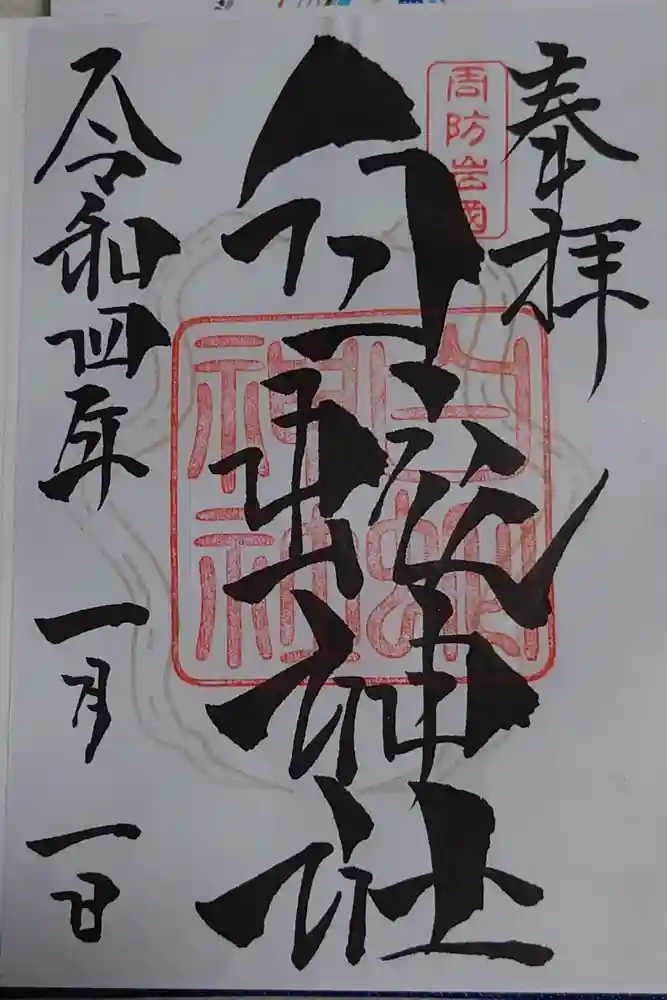 奉拝
周防岩國
白蛇神社
令和四年 一月 一日